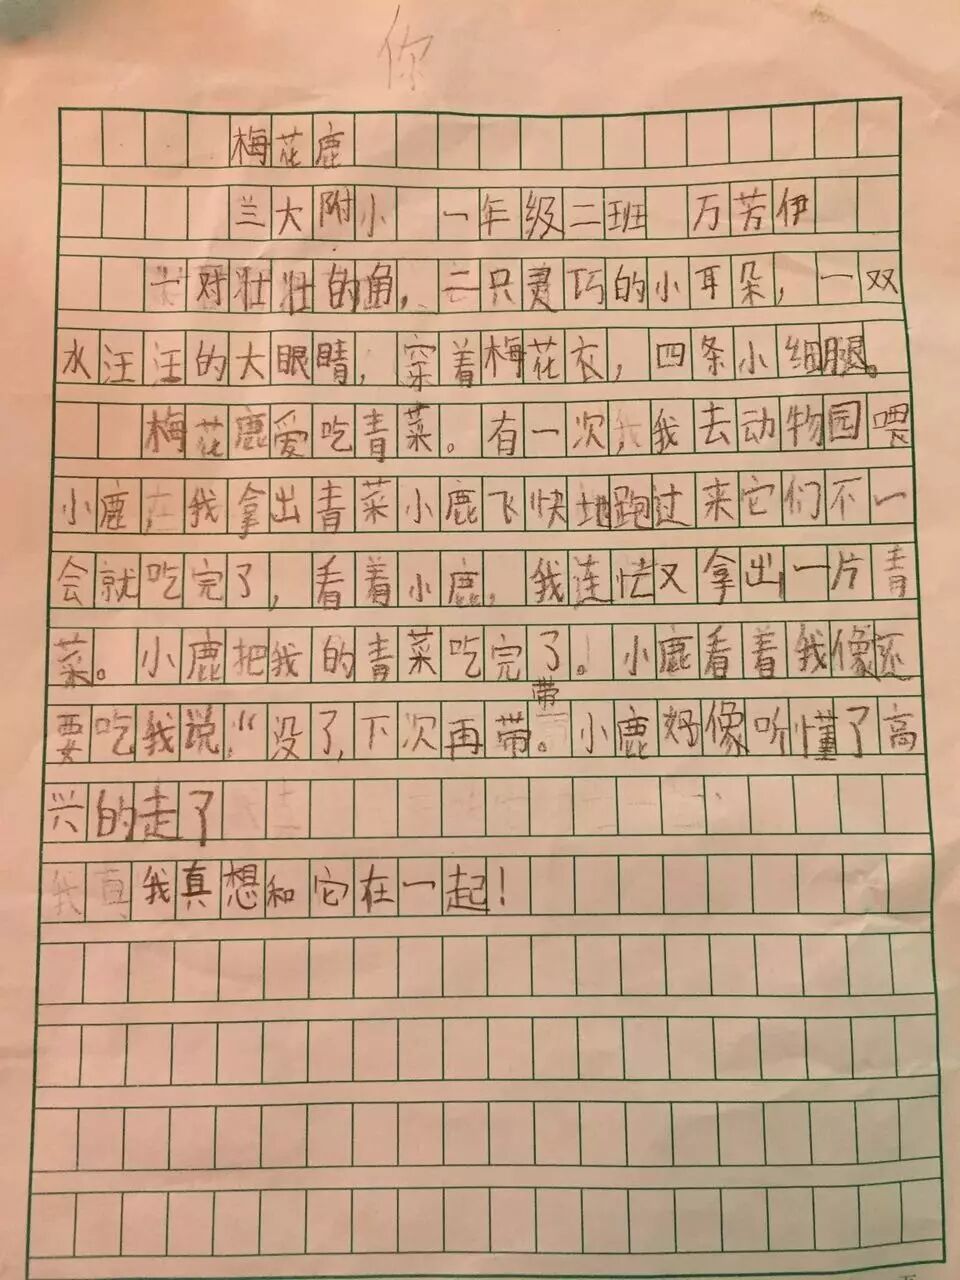 你
梅花鹿
兰大附小 一年级二班 万芳伊
一对壮壮的角，二只灵巧的小耳朵，一双
水汪汪的大眼睛，穿着梅花衣，四条小细腿。
梅花鹿爱吃青菜。有一次我我去动物园喂
小鹿，在我拿出青菜小鹿飞快地跑过来它们不一
会就吃完了，看着小鹿，我连忙又拿出一片青
菜。小鹿把我的青菜吃完了。小鹿看着我像还
带
要吃我说，“没了，下次再带。小鹿好像听懂了高
兴的走了
我真我真想和它在一起！